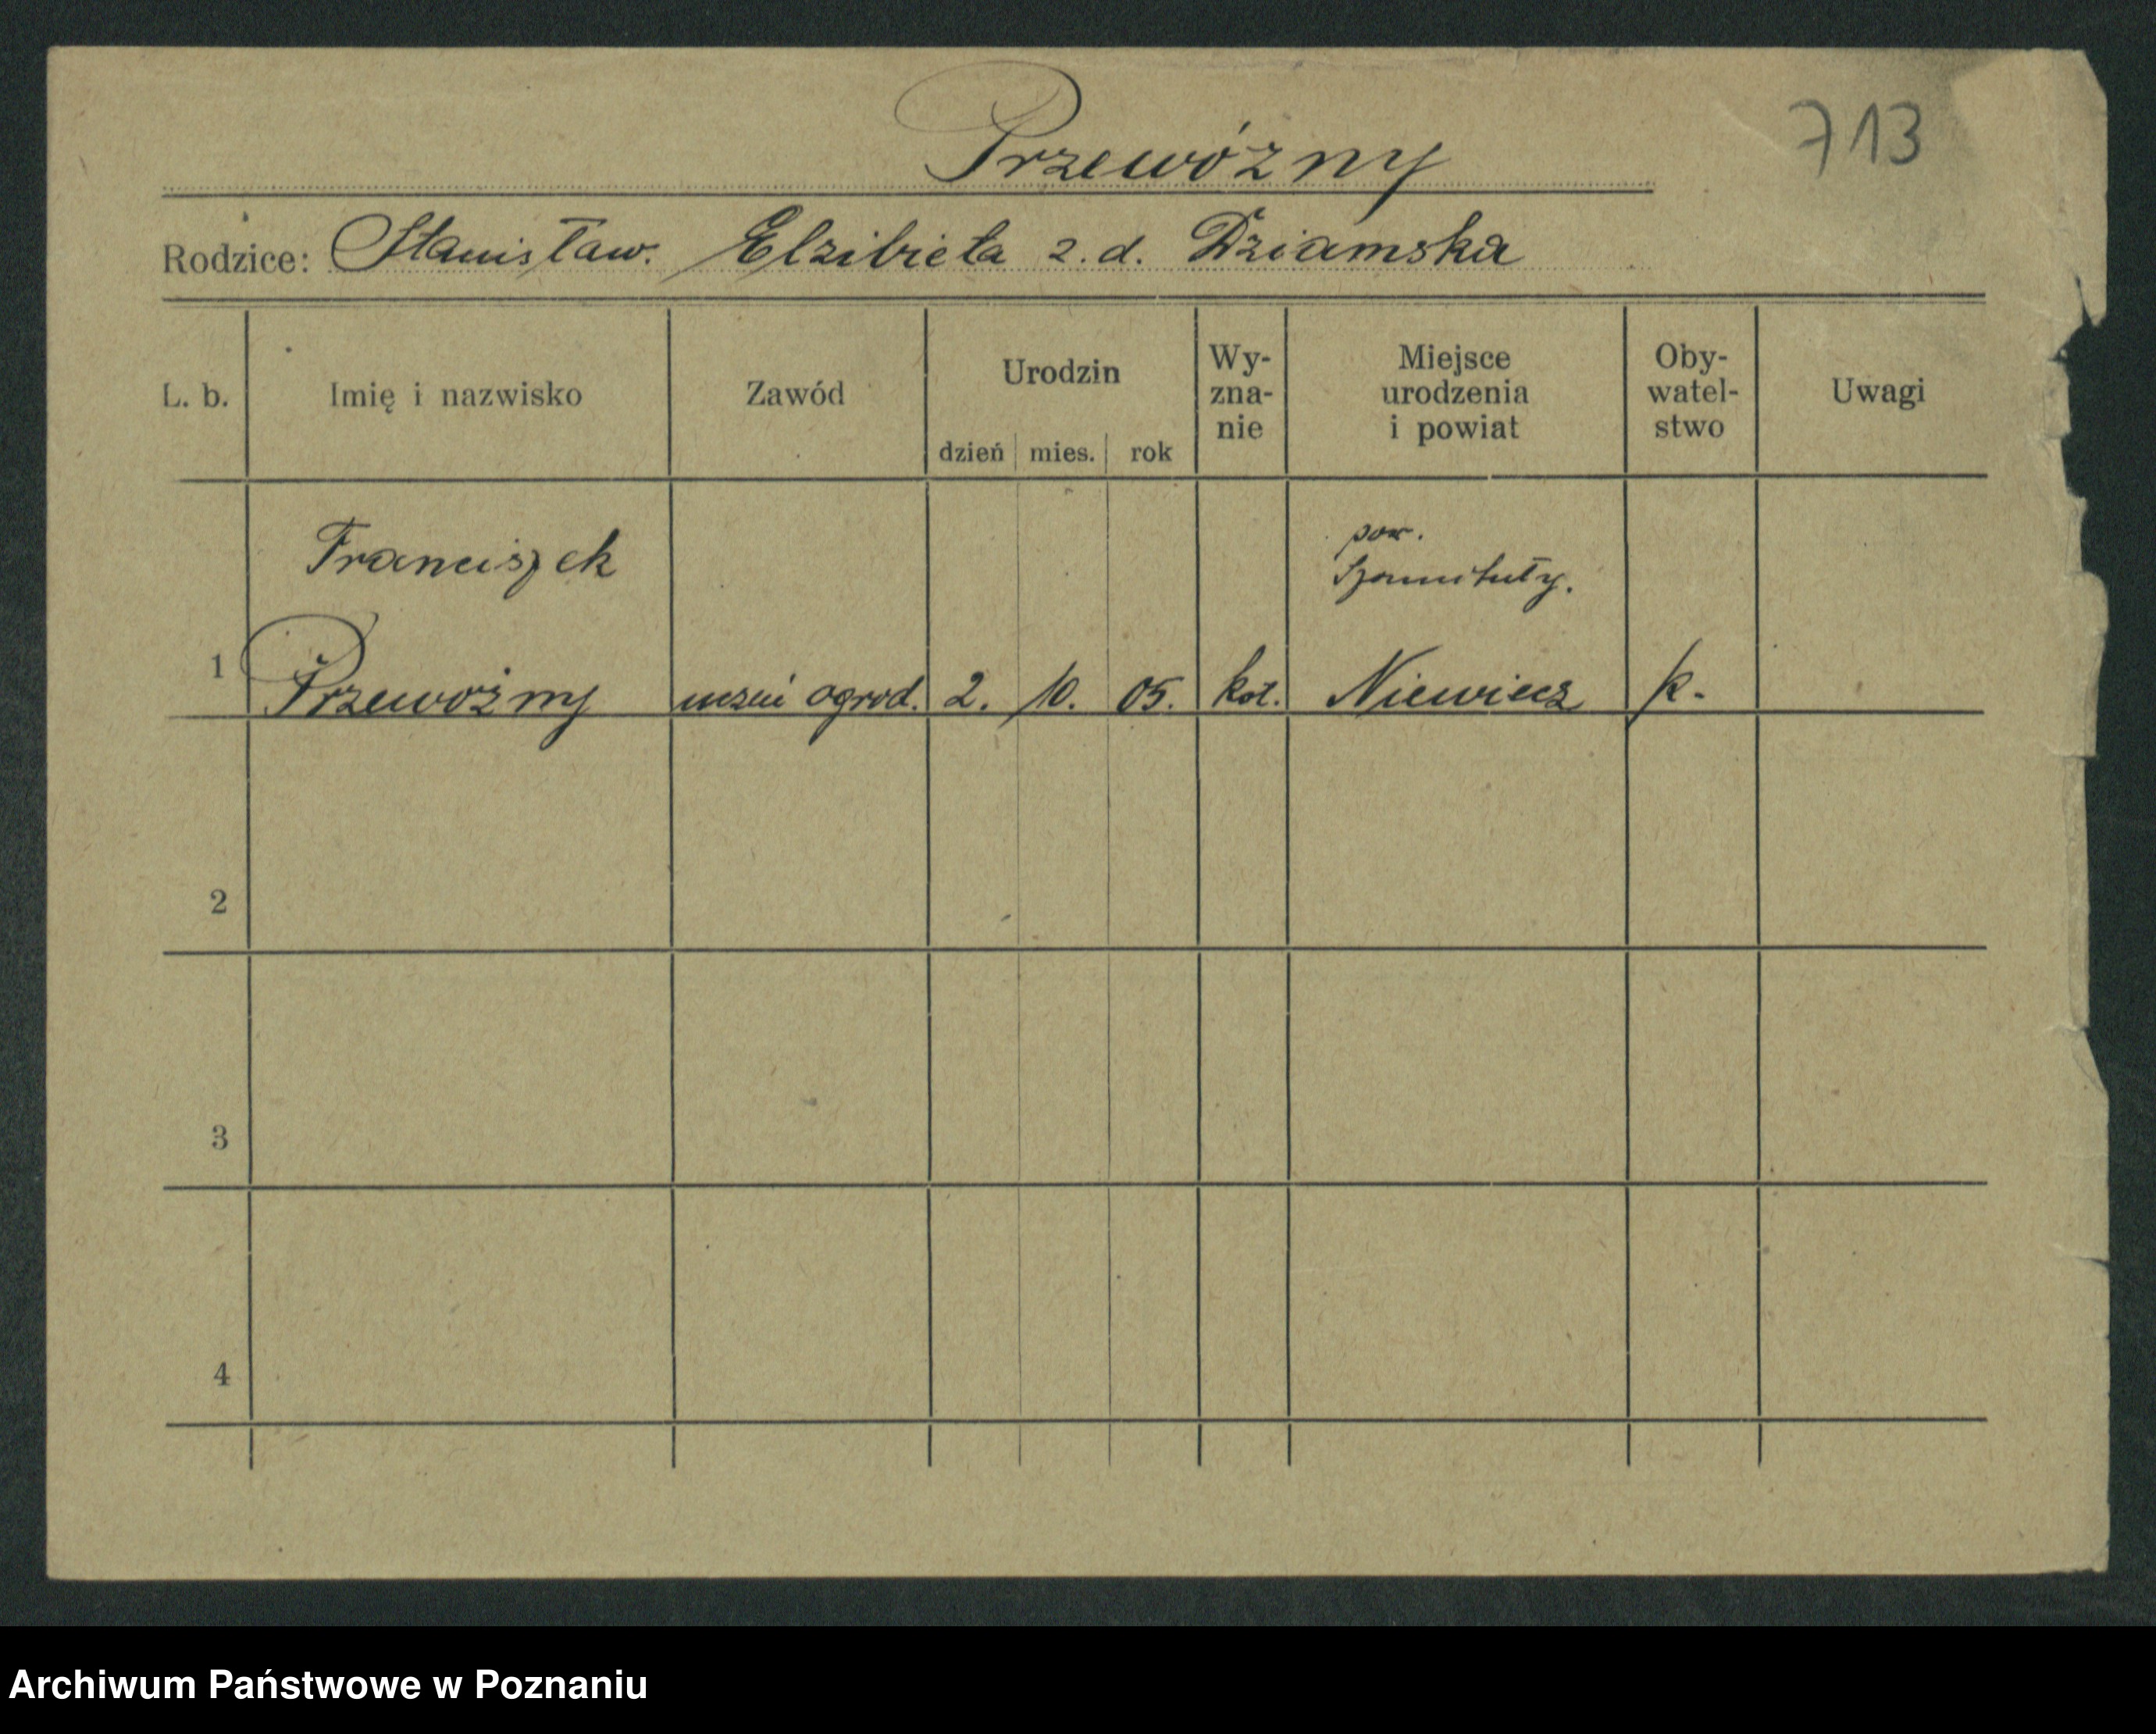 713
Przewóżny
Rodzice: Stanisław. Elzibieta z. d. Dziamska
L. b. Imię i nazwisko Zawód Urodzin dzień mies. rok Wy-zna-nie Miejsce urodzenia i powiat Oby-watel-stwo Uwagi
Franciszek pow.
Szamotuły.
1 Przewóżny uczeń ogrod. 2. 10. 05. kat. Niewierz p.
2
3
4
Archiwum Państwowe w Poznaniu